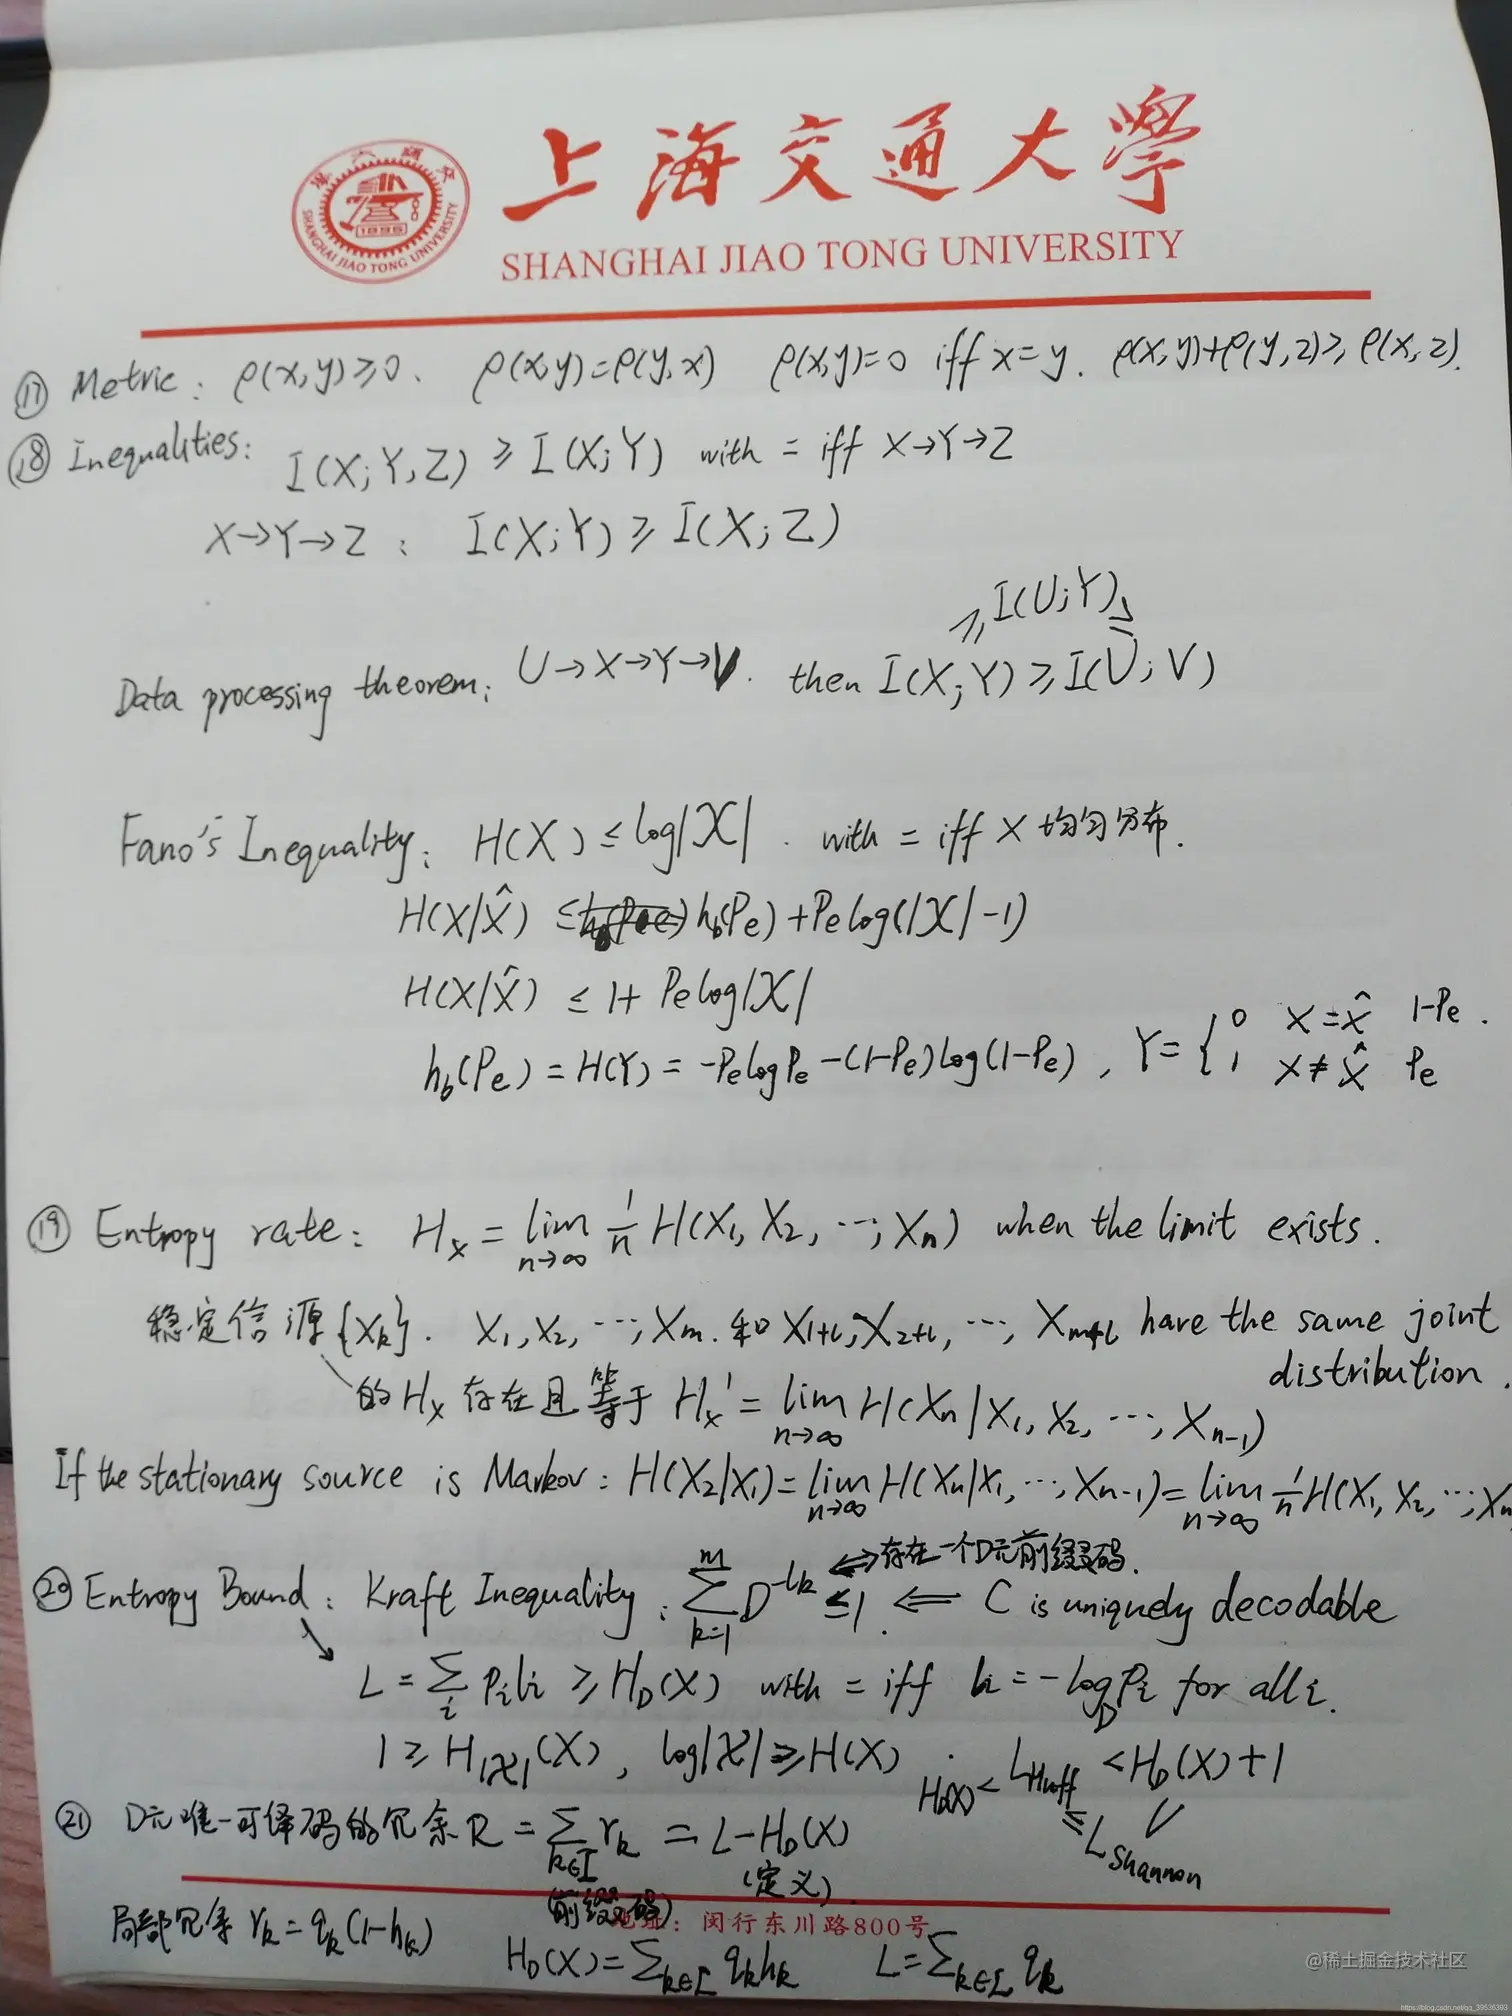 上海交通大學
SHANGHAI JIAO TONG UNIVERSITY
1896
SHANGHAI JIAO TONG UNIVERSITY
⑰ Metric: ρ(x,y)≥0. ρ(x,y)=ρ(y,x) ρ(x,y)=0 iff x=y. ρ(x,y)+ρ(y,z)≥ρ(x,z).
⑱ Inequalities: I(X;Y,Z) ≥ I(X;Y) with = iff X→Y→Z
X→Y→Z : I(X;Y) ≥ I(X;Z)
≥ I(U;Y) ≥
Data processing theorem: U→X→Y→V. then I(X;Y) ≥ I(U;V)
Fano's Inequality: H(X) ≤ log|𝒳|. with = iff X 均匀分布.
H(X|X̂) ≤ h_b(Pe) + Pe log(|𝒳|-1)
H(X|X̂) ≤ 1 + Pe log|𝒳|
h_b(Pe) = H(Y) = -Pe log Pe - (1-Pe) log(1-Pe), Y = { 0 X=X̂ 1-Pe.
1 X≠X̂ Pe
⑲ Entropy rate: H_X = lim_{n→∞} 1/n H(X₁, X₂, …, Xₙ) when the limit exists.
稳定信源{X_k}. X₁, X₂, …, X_m. 和 X_{1+l}, X_{2+l}, …, X_{m+l} have the same joint
distribution.
的 H_X 存在且等于 H_X' = lim_{n→∞} H(Xₙ|X₁, X₂, …, X_{n-1})
If the stationary source is Markov: H(X₂|X₁) = lim_{n→∞} H(Xₙ|X₁, …, X_{n-1}) = lim_{n→∞} 1/n H(X₁, X₂, …, Xₙ
⇔存在一个D元前缀码.
⑳ Entropy Bound: Kraft Inequality: ∑_{k=1}^{m} D^{-l_k} ≤ 1. ⇐ C is uniquely decodable
L = ∑_i p_i l_i ≥ H_D(X) with = iff l_i = -log_D P_i for all i.
1 ≥ H_{|𝒳|}(X), log|𝒳| ≥ H(X). H_D(X) < L_Huff < H_D(X)+1
≤ L_Shannon
㉑ D元唯一可译码的冗余 R = ∑_{k∈I} r_k = L - H_D(X)
(前缀码) (定义)
地址: 闵行东川路800号
局部冗余 r_k = q_k(1-h_k)
H_D(X) = ∑_{k∈I} q_k h_k L = ∑_{k∈I} q_k
@稀土掘金技术社区